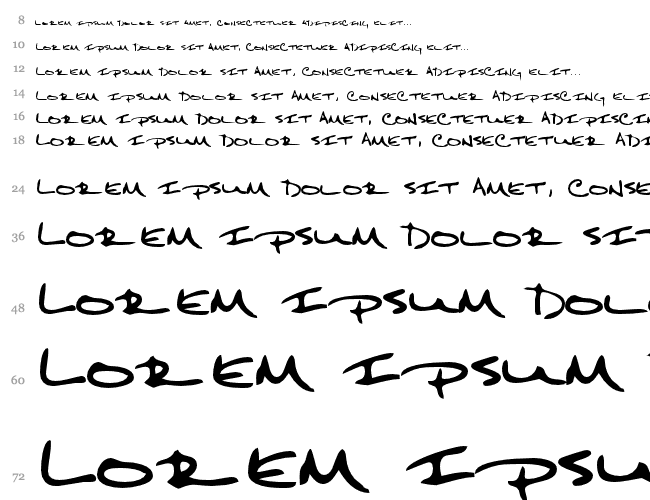 8 Lorem Ipsum Dolor sit Amet, Consectetuer Adipiscing elit...
10 Lorem Ipsum Dolor sit Amet, Consectetuer Adipiscing elit...
12 Lorem Ipsum Dolor sit Amet, Consectetuer Adipiscing elit...
14 Lorem Ipsum Dolor sit Amet, Consectetuer Adipiscing eli
16 Lorem Ipsum Dolor sit Amet, Consectetuer Adipiscin
18 Lorem Ipsum Dolor sit Amet, Consectetuer Adi
24 Lorem Ipsum Dolor sit Amet, Conse
36 Lorem Ipsum Dolor sit
48 Lorem Ipsum Dolo
60 Lorem Ipsum
72 Lorem Ipsu